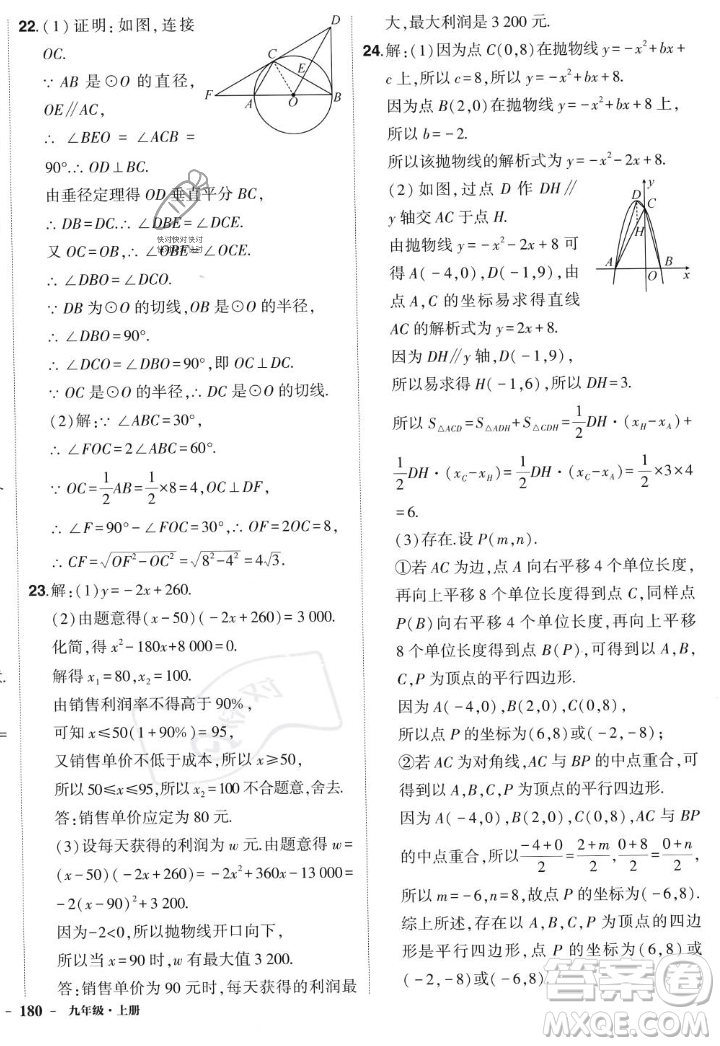 22. (1)证明:如图,连接
OC.
∵ AB 是⊙O 的直径,
OE∥AC,
∴ ∠BEO = ∠ACB =
90°.∴ OD⊥BC.
由垂径定理得 OD 垂直平分 BC,
∴ DB=DC.∴ ∠DBE=∠DCE.
又 OC=OB,∴ ∠OBE=∠OCE.
∴ ∠DBO=∠DCO.
∵ DB 为⊙O 的切线,OB 是⊙O 的半径,
∴ ∠DBO=90°.
∴ ∠DCO=∠DBO=90°,即 OC⊥DC.
∵ OC 是⊙O 的半径,∴ DC 是⊙O 的切线.
(2)解:∵ ∠ABC=30°,
∴ ∠FOC=2∠ABC=60°.
∵ OC=1/2AB=1/2×8=4,OC⊥DF,
∴ ∠F=90°-∠FOC=30°,∴ OF=2OC=8,
∴ CF=√(OF²-OC²)=√(8²-4²)=4√3.
23. 解:(1)y=-2x+260.
(2)由题意得(x-50)(-2x+260)=3 000.
化简,得 x²-180x+8 000=0.
解得 x₁=80,x₂=100.
由销售利润率不得高于 90%,
可知 x≤50(1+90%)=95,
又销售单价不低于成本,所以 x≥50,
所以 50≤x≤95,所以 x₂=100 不合题意,舍去.
答:销售单价应定为 80 元.
(3)设每天获得的利润为 w 元.由题意得 w=
(x-50)(-2x+260)=-2x²+360x-13 000=
-2(x-90)²+3 200.
因为-2<0,所以抛物线开口向下,
所以当 x=90 时,w 有最大值 3 200.
答:销售单价为 90 元时,每天获得的利润最
180 九年级·上册
大,最大利润是 3 200 元.
24. 解:(1)因为点 C(0,8)在抛物线 y=-x²+bx+
c 上,所以 c=8,所以 y=-x²+bx+8.
因为点 B(2,0)在抛物线 y=-x²+bx+8 上,
所以 b=-2.
所以该抛物线的解析式为 y=-x²-2x+8.
(2)如图,过点 D 作 DH∥
y 轴交 AC 于点 H.
由抛物线 y=-x²-2x+8 可
得 A(-4,0),D(-1,9),
由点 A,C 的坐标易求得直线
AC 的解析式为 y=2x+8.
因为 DH∥y 轴,D(-1,9),
所以易求得 H(-1,6),所以 DH=3.
所以 S△ACD=S△ADH+S△CDH=1/2DH·(x_H-x_A)+
1/2DH·(x_C-x_H)=1/2DH·(x_C-x_A)=1/2×3×4
=6.
(3)存在.设 P(m,n).
①若 AC 为边,点 A 向右平移 4 个单位长度,
再向上平移 8 个单位长度得到点 C,同样点
P(B)向右平移 4 个单位长度,再向上平移
8 个单位长度得到点 B(P),可得到以 A,B,
C,P 为顶点的平行四边形.
因为 A(-4,0),B(2,0),C(0,8),
所以点 P 的坐标为(6,8)或(-2,-8).
②若 AC 为对角线,当 AC 与 BP 的中点重合,可
得到以 A,B,C,P 为顶点的平行四边形.
因为 A(-4,0),B(2,0),C(0,8),AC 与 BP
的中点重合,所以(-4+0)/2=(2+m)/2,(0+8)/2=(0+n)/2,
所以 m=-6,n=8,故点 P 的坐标为(-6,8).
综上所述,存在点 P,使得以 A,B,C,P 为顶点的四边
形是平行四边形,点 P 的坐标为(6,8)或
(-2,-8)或(-6,8).
答案圈
MXQE.COM